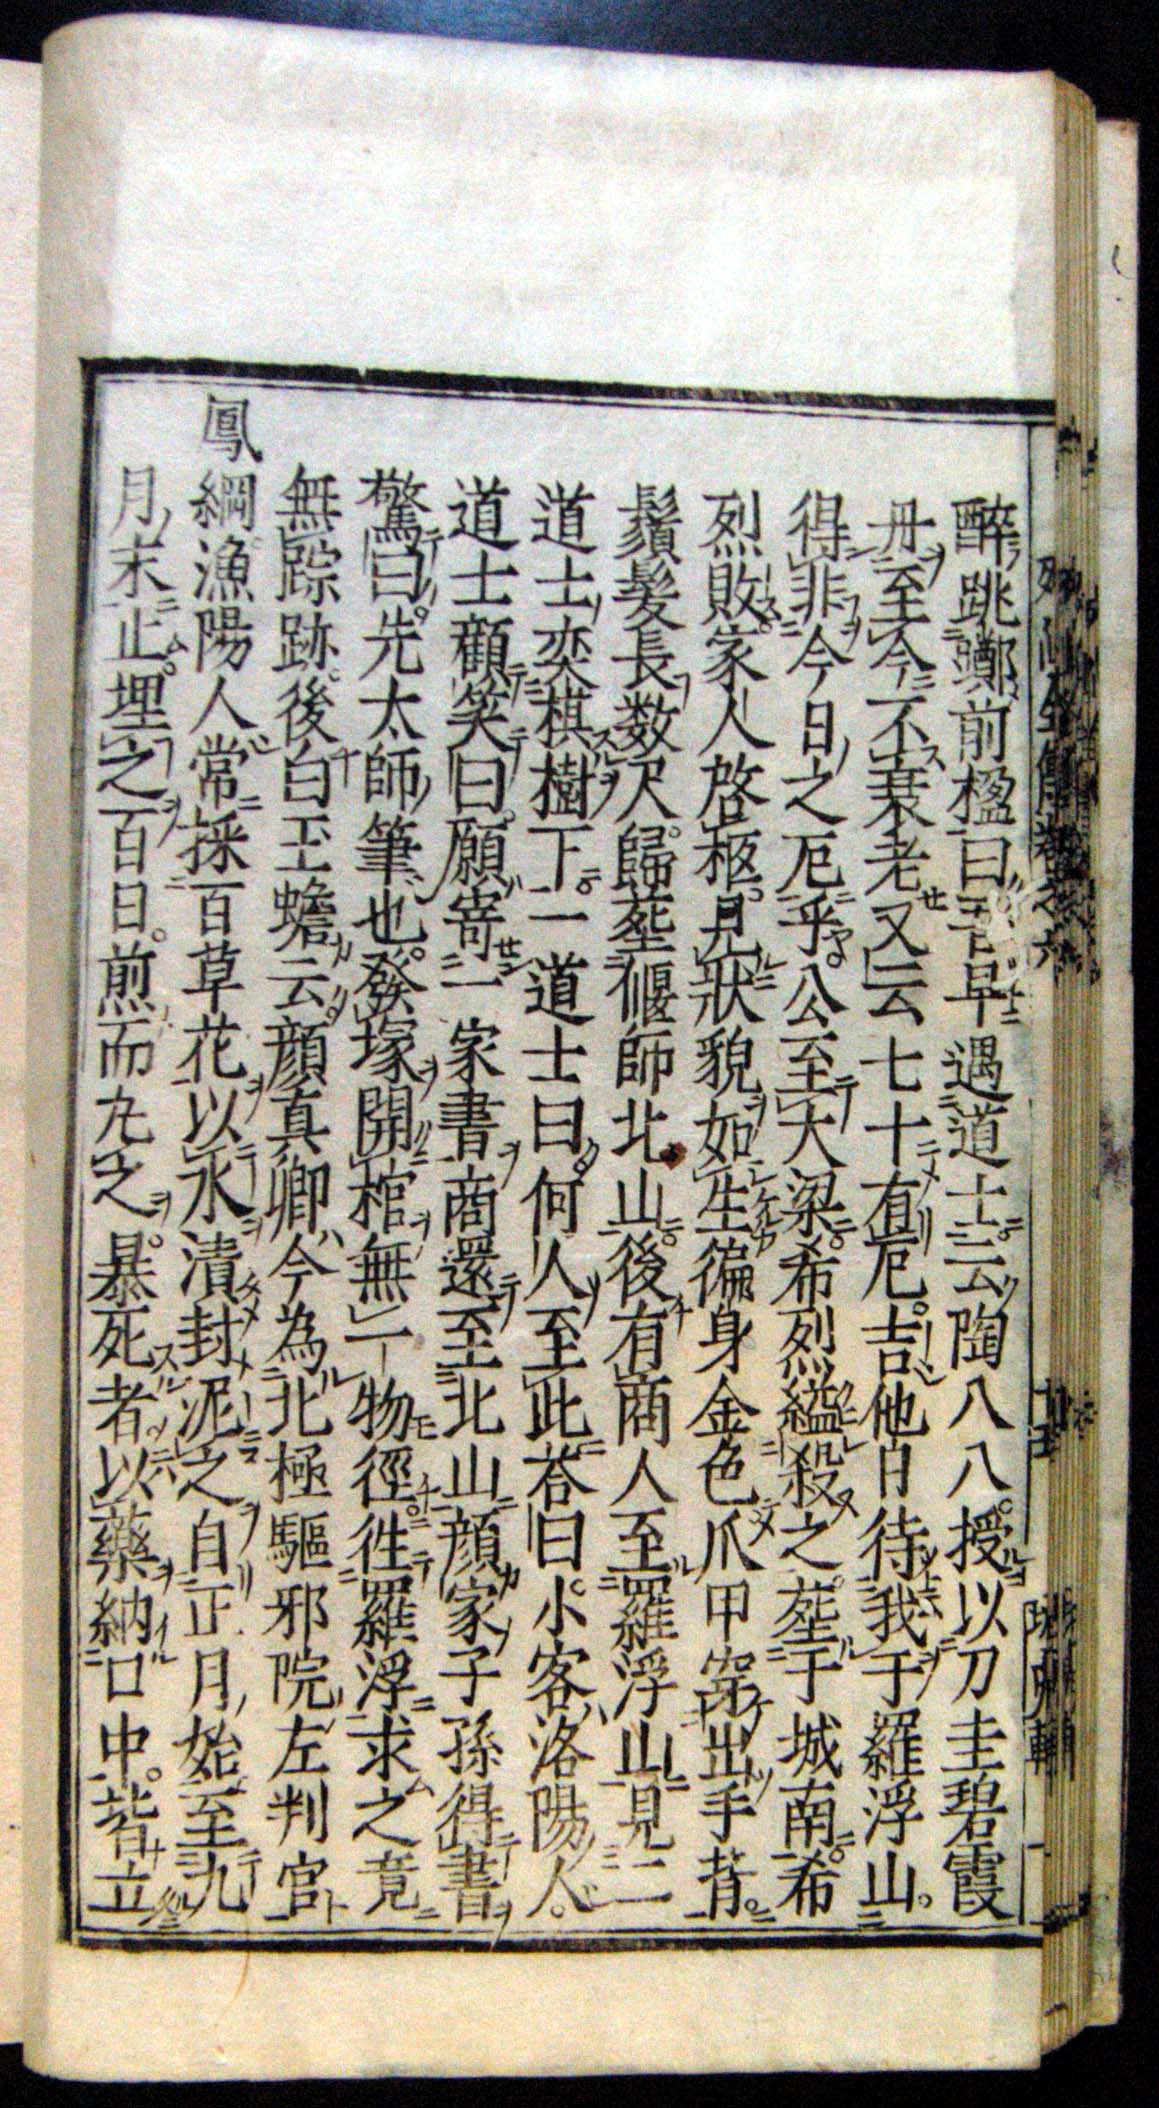 醉跳躑前楹曰吾早遇道士云陶八八授以刀圭碧霞
丹至今不衰老又云七十有厄吉他日待我于羅浮山
得非今日之厄乎公至大梁希烈縊殺之塟于城南希
烈敗家人啓柩見狀貌如生徧身金色爪甲穿出手背
鬚髮長数尺歸塟偃師北山後有商人至羅浮山見二
道士奕棋樹下一道士曰何人至此荅曰小客洛陽人
道士顧笑曰願寄一家書商還至北山顔家子孫得書
驚曰先太師筆也發塚開棺無一物徑徃羅浮求之竟
無踪跡後白玉蟾云顔真卿今為北極驅邪院左判官
鳳綱漁陽人常採百草花以水漬封泥之自正月始至九
月末止埋之百日煎而九之暴死者以藥納口中皆立